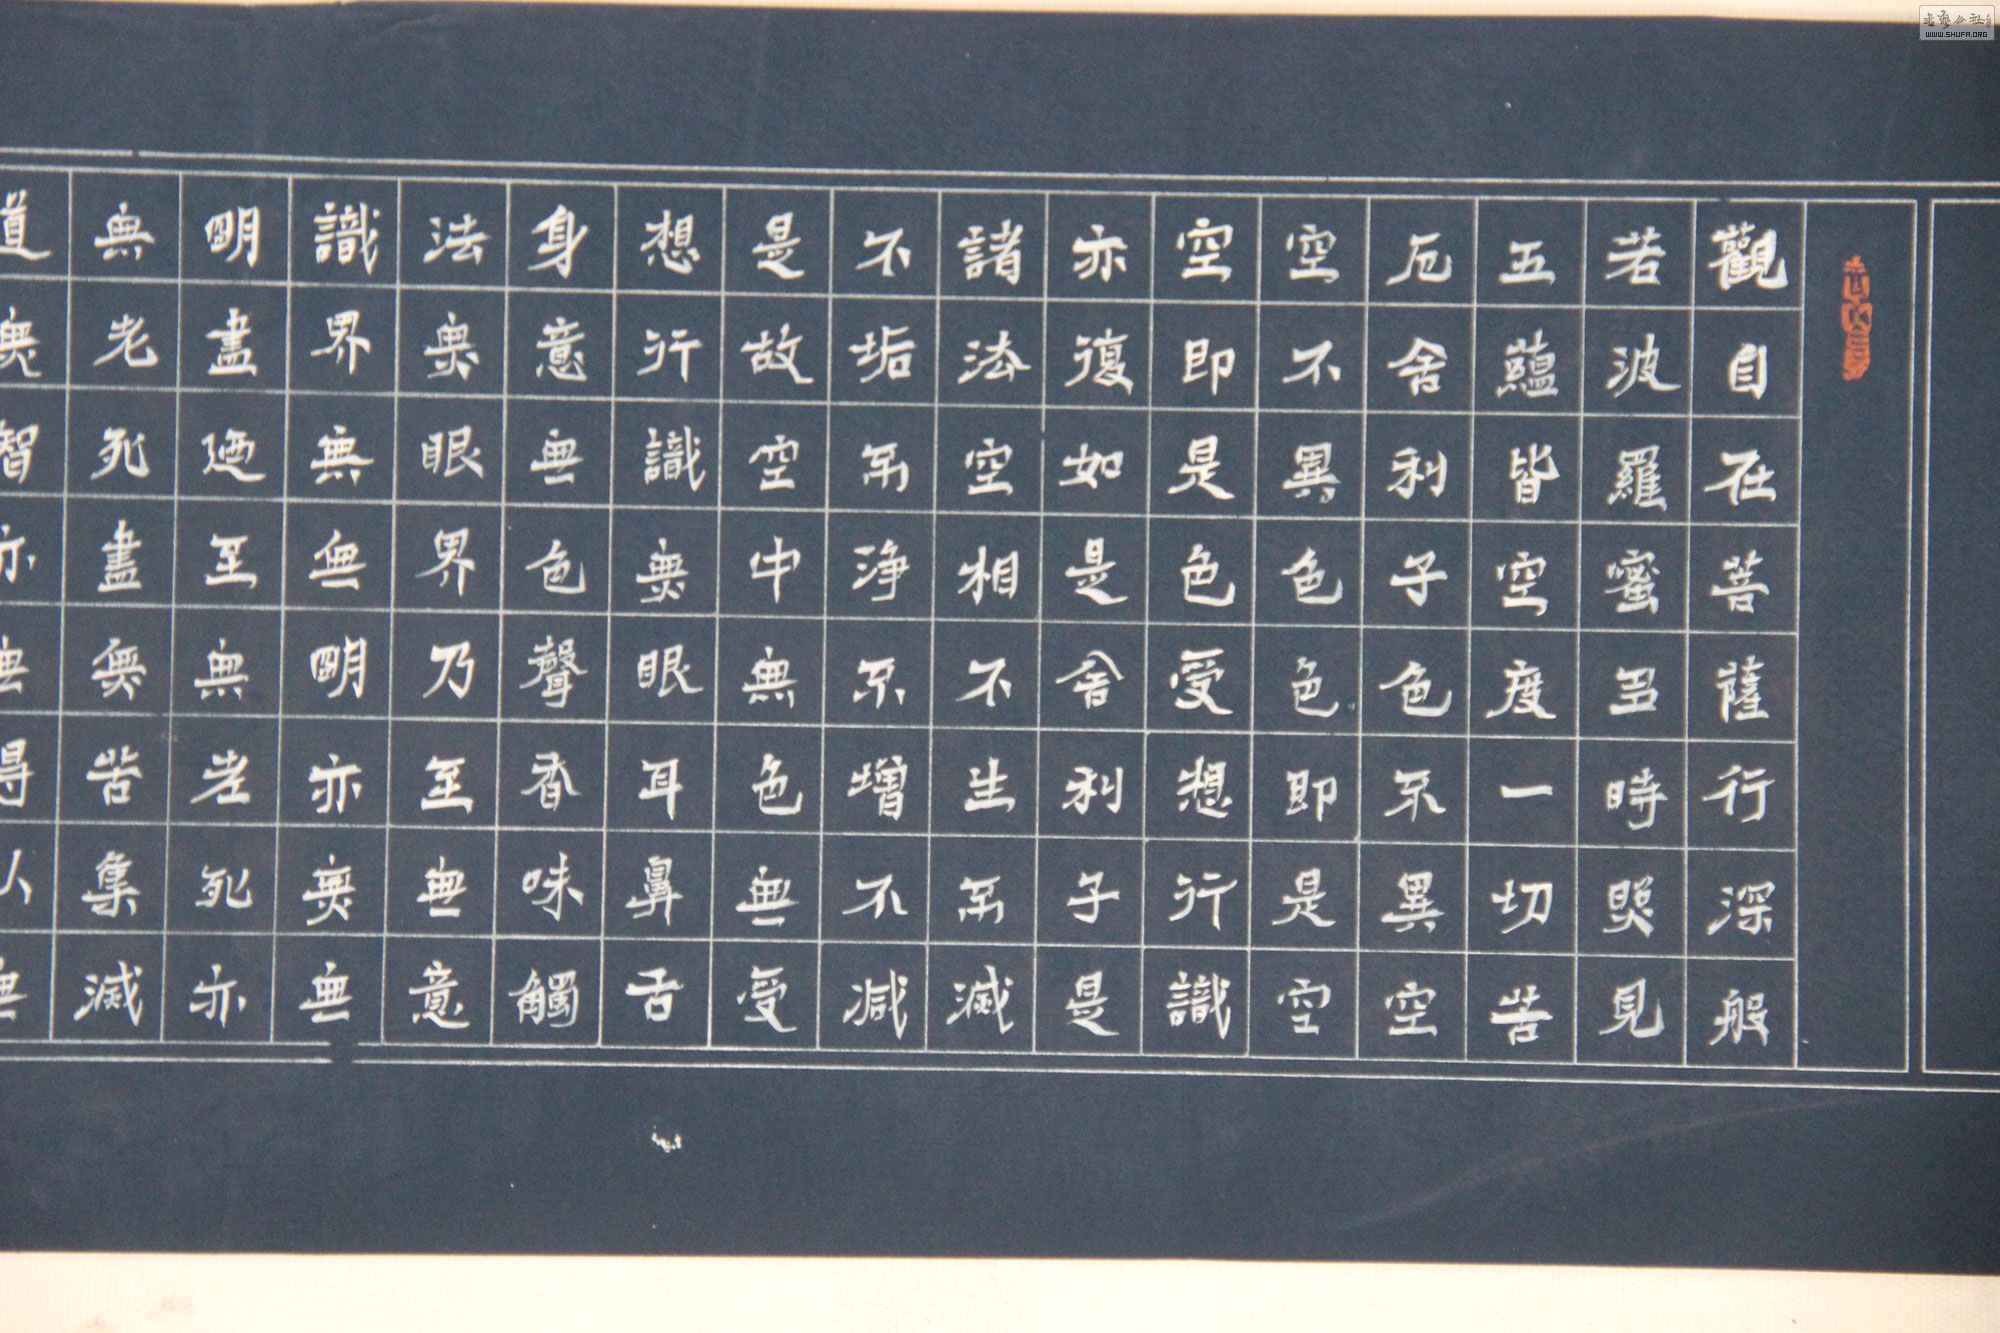 觀自在菩薩行深般
若波羅蜜多時照見
五蘊皆空度一切苦
厄舍利子色不異空
空不異色色即是空
空即是色受想行識
亦復如是舍利子是
諸法空相不生不滅
不垢不淨不增不減
是故空中無色無受
想行識無眼耳鼻舌
身意無色聲香味觸
法無眼界乃至無意
識界無無明亦無無
明盡廼至無老死亦
無老死盡無苦集滅
道無智亦無得以無
WWW.SHUFA.ORG